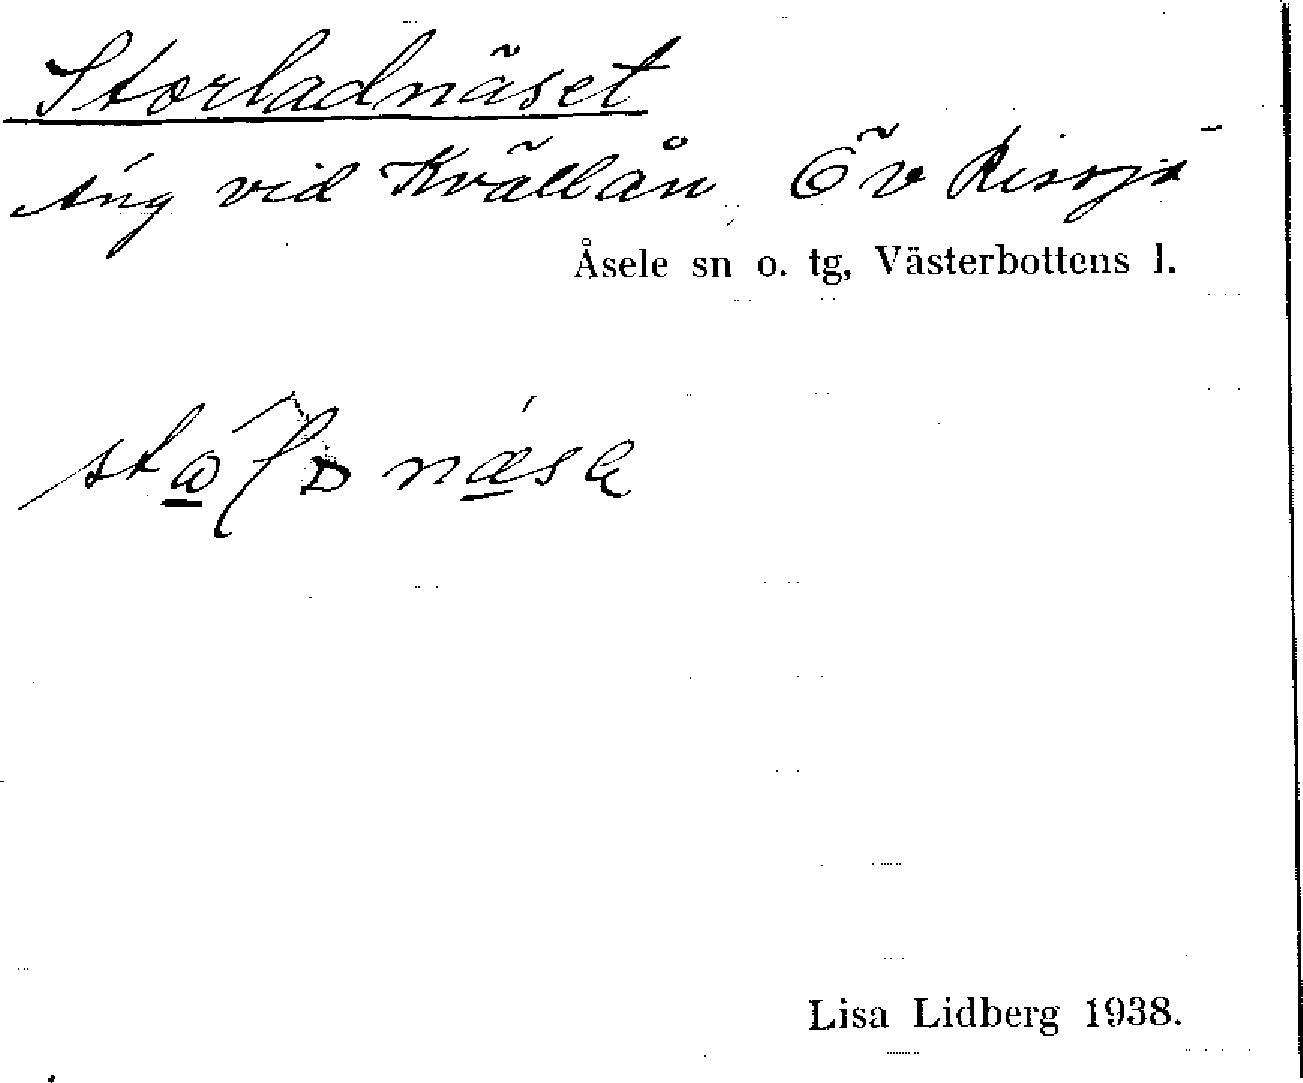 Storladnäset
Äng vid Kvällån, Öv Rissjö
Åsele sn o. tg, Västerbottens l.
Lisa Lidberg 1938.